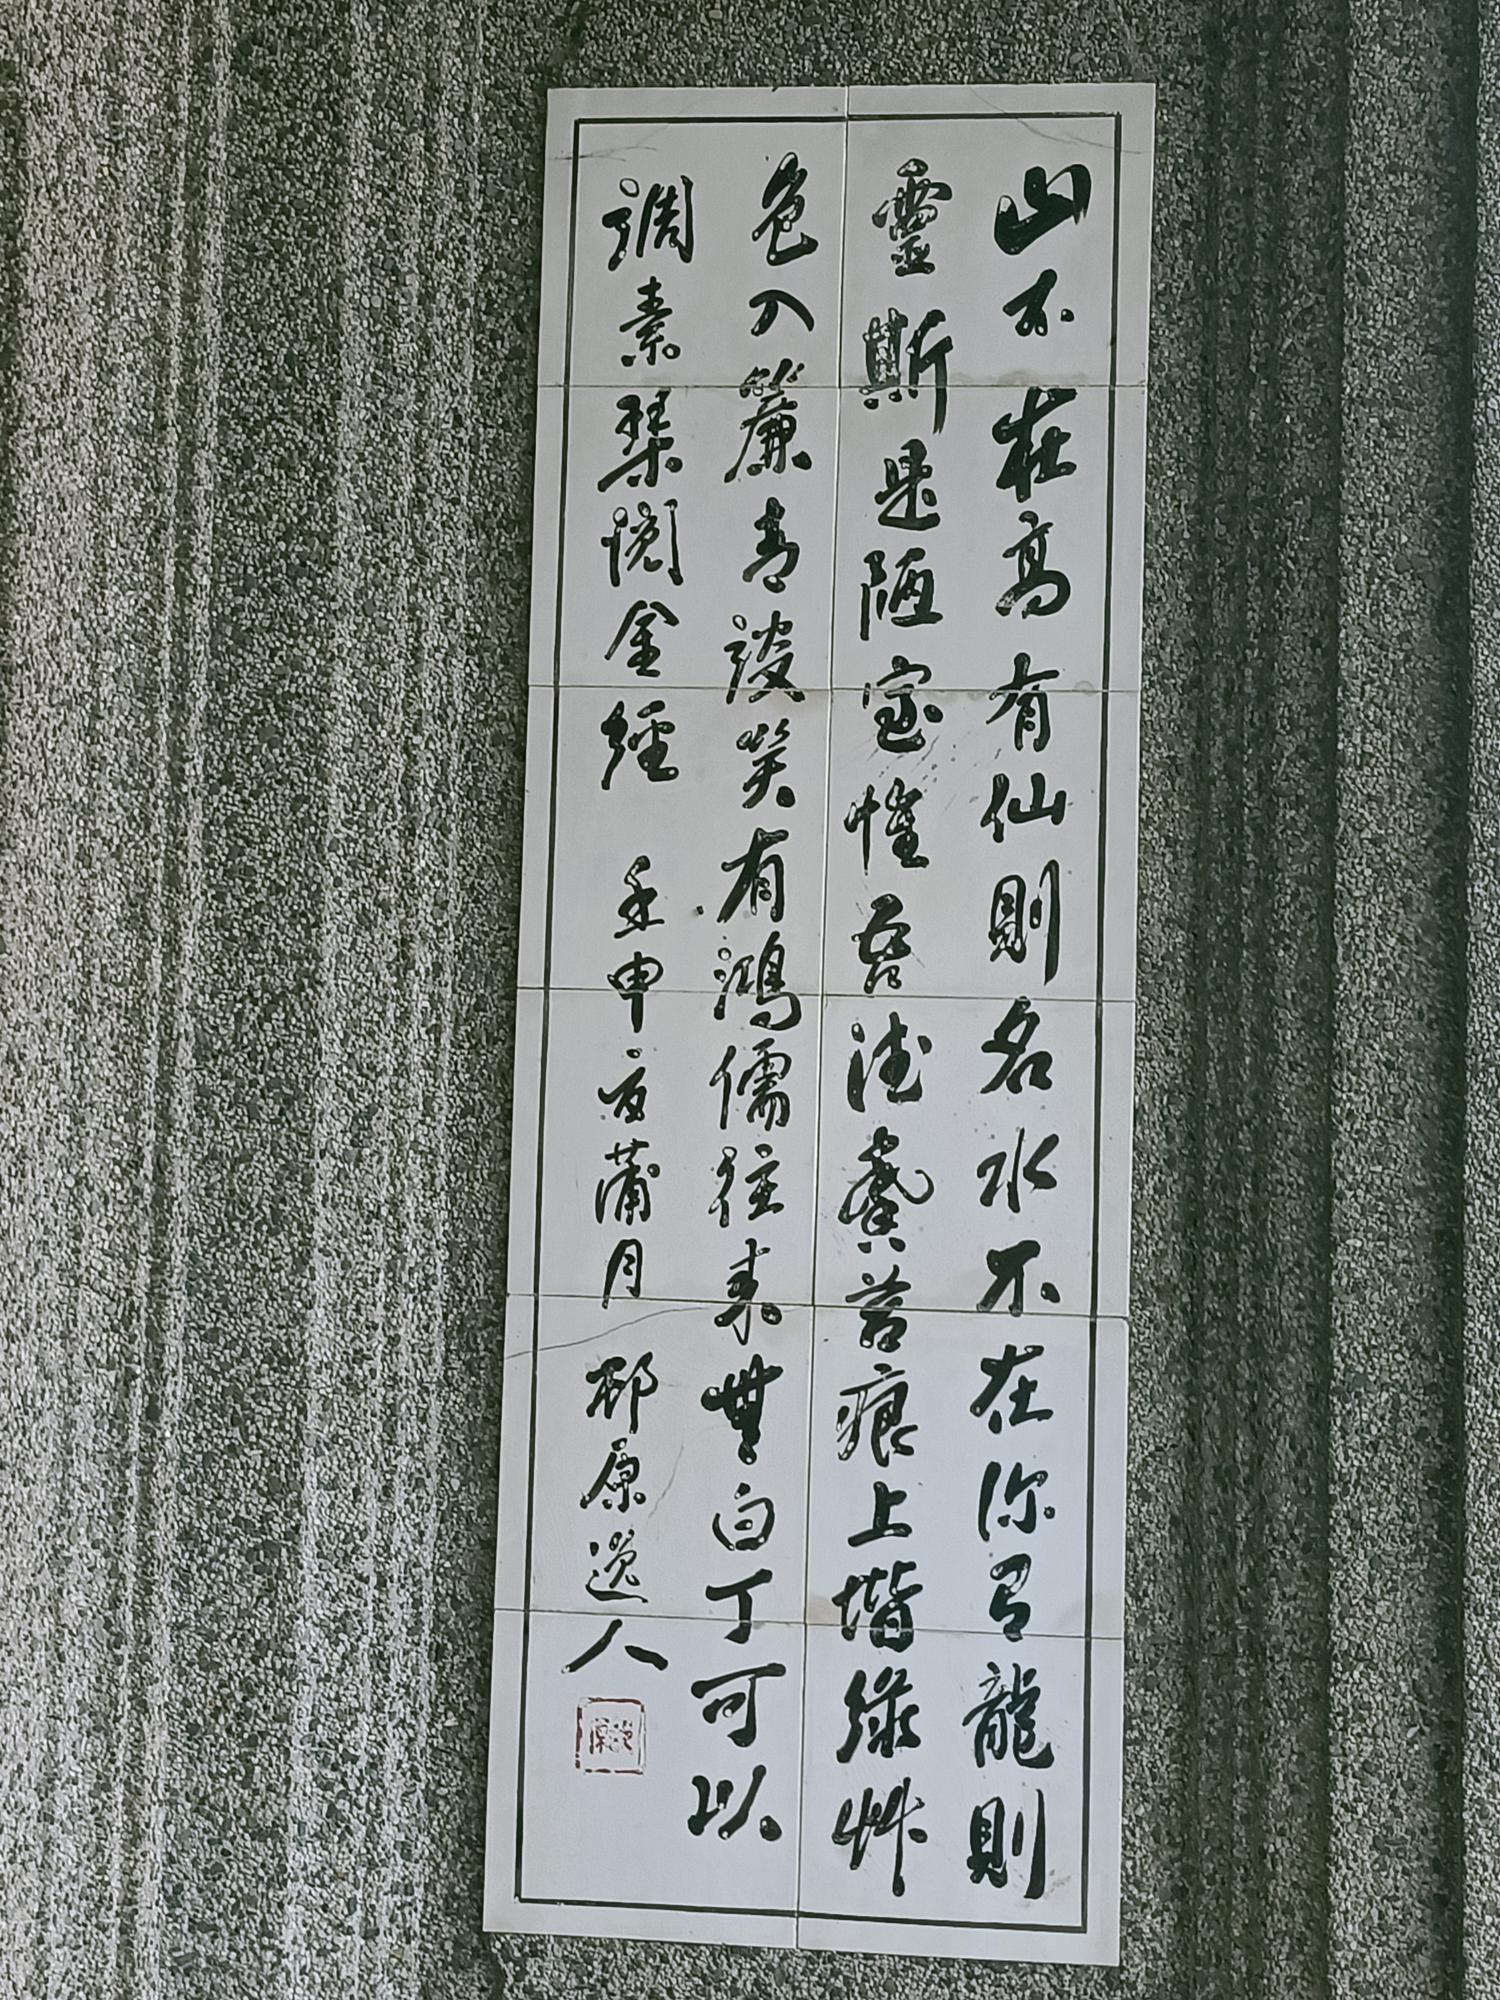 山不在高有仙則名水不在深有龍則
靈斯是陋室惟吾德馨苔痕上堦綠艸
色入簾青談笑有鴻儒往來無白丁可以
調素琴閱金經 壬申夏蒲月 原逸人